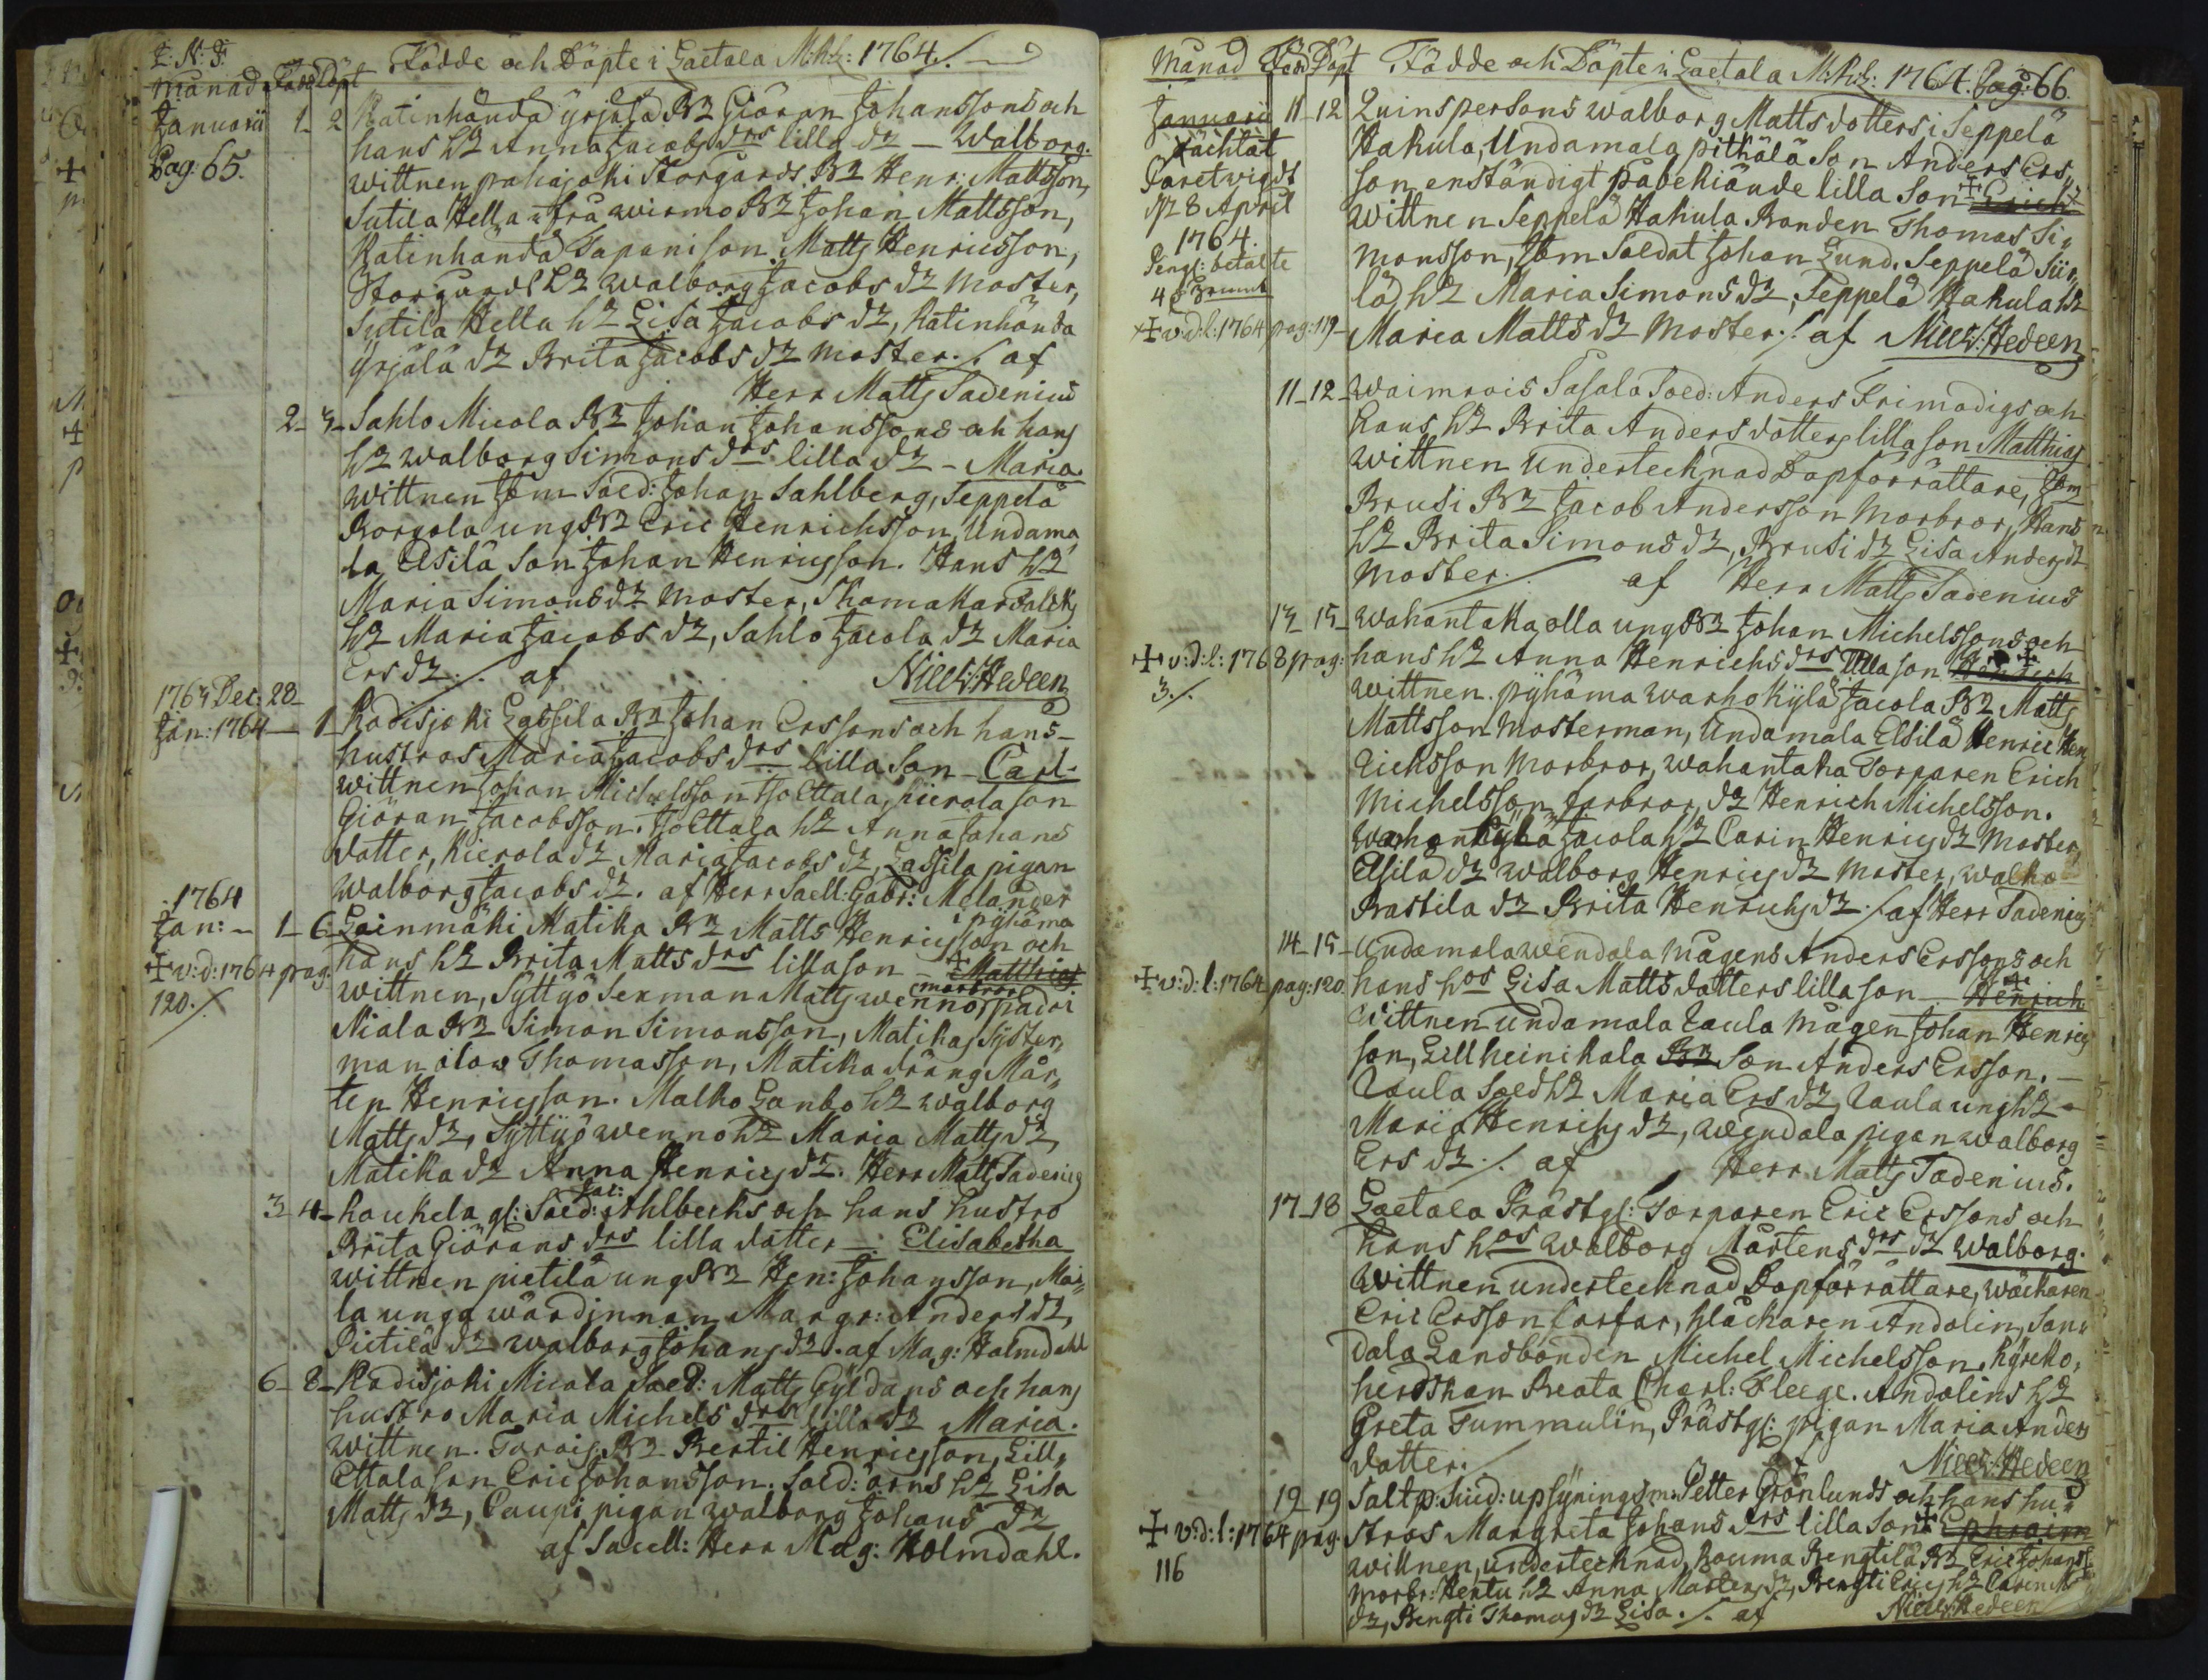 I: N: F:
Månad Född Döpt Födde och Döpte i Laetala M:k:l: 1764./.
Januarii 1_ 2 Katinhända yrjälä B:r Giöran Johanssons och
Pag: 65. hans h:r Anna Jacobs d:rs lilla d:r — Walborg.
wittnen pahajoki Storgårds B:r Henr: Mattsson,
Sutila Hella ifrå wirmo B:r Johan Mattsson,
Katinhändä Tapani son Matts Henricsson,
Storgårds h:r Walborg Jacobs d:r moster,
Sutila Hella h:r Lisa Jacobs d:r, Katinhända
yrjälä d:r Brita Jacobs d:r moster ./. af
Herr Matts Tadenius
2_ 3_ Sahlo Micola B:r Johan Johanssons och hans
h:r Walborg Simons d:rs lilla d:r – Maria.
wittnen Jem Soed: Johan Sahlberg, Seppelä
Borgola ung B:r Eric Henrichsson, Undama
la Elsilä Son Johan Henricsson. Hans h:r
Maria Simons d:r moster, Skomakar
h:r Maria Jacobs d:r, Sahlo Jacola d:r Maria
Ers d:r ./. af Niels: Hedeen
1763 Dec: 28_
Jan: 1764 — 1_ Kodisjoki Lassila B:r Johan Erssons och hans
hustros Maria Jacobs d:rs lilla Son – Carl.
wittnen Johan Michelsson Isoettala, Kierola son
Giöran Jacobsson. Isoettala h:r Anna Johans
dotter, Kierola d:r Maria Jacobs d:r, Lassila pigan
Walborg Jacobs d:r. af Herr Sacell: Gabr: Melander
i pyhäma
1764
Jan: – 1_ 6_ Lainmäki Matika B:r Matts Henricsson och
✝ v: d: 1764 pag. hans h:r Brita Matts d:rs lilla son – ✝ Matthias
120./. wittnen, Syttyö Sexman Matts wenno morbror, padoi
Niala B:r Simon Simonsson, Matikas Syster,,
man olov Thomasson, Matika dräng Mår,,
ten Henricsson. Malko Lanbo h:r Walborg
Matts d:r, Syttyö wenno h:r Maria Matts d:r,
Matika d:r Anna Henrics d:r. Herr Matts Tadenius
3_ 4_ Kaukola gl: Soed: Jac: Ahlbecks och hans hustro
Brita Giörans d:rs lilla dotter –: Elisabetha
wittnen pietilä ung B:r Hen: Johansson, Mai,,
la unga wärdinnan Margr: Anders d:r,
Pietilä d:r Walborg Johans d:r. af Mag: Holmdahl
6_ 8_ Kodisjoki Micola Soed: Matts Gyldans och hans
hustro Maria Michels d:rs lilla d:r Maria.
wittnen. Turois B:r Bertil Henricsson, Lill,,
Ettala son Eric Johansson. Soed: orns h:r Lisa
Matts d:r, Caupi pigan Walborg Johans d:r
af Sacell: Herr Mag: Holmdahl.
Månad Född Döpt Födde och Döpte i Laetala M:k:l: 1764. Pag: 66.
Januarii 11_12 Quinspersons Walborg Matts dotters i Seppelä
Hakula, Undamala pithälä Son Anders Ers,,
son enständigt påbekiände lilla Son ✝ Erich
d: 8 April wittnen Seppelä Hakula Bonden Thomas Si,,
1764. monsson, Jem Soldat Johan Lund, Seppelä Siir,,
betalte lä h:r Maria Simons d:r, Seppelä Hakula h:r
✝ v: d: l: 1764 pag: 119_ Maria Matts d:r moster ./. af Niels: Hedeen
11_12_ Waimrois Sasala Soed: Anders Frimodigs och
hans h:r Brita Anders dotters lilla son Matthias
wittnen undertecknad Dopförrättare, Jem
Brusi B:r Jacob Andersson morbror, Hans
h:r Brita Simons d:r, Brusi d:r Lisa Anders d:r
moster ./. af Herr Matts Tadenius
13_15_ Wahantaka olla ung B:r Johan Michelssons och
✝ v: d: l: 1768 pag: hans h:r Anna Henrichs d:rs lilla son ✝ Henrich
3./. wittnen. pyhäma warhokylä Jacola B:r Matts
Mattsson mosterman, Undamala Elsilä Henric Hen
richsson morbror, Wahantaka Torparen Erich
Michelsson farbror, d:r Henrich Michelsson.
Jacola h:r Carin Henrics d:r moster,
Elsilä d:r Walborg Henrics d:r moster, Walko
Rastila d:r Brita Henrichs d:r ./. af Herr Tadenius
14_15_ Undamala Wendola mågens Anders Erssons och
✝ v: d: l: 1764 pag: 120. hans h:os Lisa Matts dotters lilla son – ✝ Henrich
wittnen undamala Taula mågen Johan Henrics
son, Lillheinikala Son Anders Ersson. –
Taula Soed h:r Maria Ers d:r, Taula ung h:r
Maria Henrichs d:r, Wendola pigan Walborg
Ers d:r ./. af Herr Matts Tadenius.
17_18 Laetala Prästg: Torparen Eric Erssons och
hans h:os Walborg Mårtens d:rs d:r Walborg.
wittnen undertecknad Dopförrättare, wäckaren
Eric Ersson farfar, klåckaren Andolin, San,,
dola Landbonden Michel Michelsson. Kyrcko,,
herdskan Beata Charl: Fleege. Andolins h:r
Greta Tummulin, Prästg: pigan Maria Anders
dotter. af Niels: Hedeen
19_19 Salt p: Siud: upsyningsm: Petter Grönlunds och hans hu,,
✝ v: d: l: 1764 pag. stros Margreta Johans d:rs lilla Son ✝ Ephraim
116 wittnen, undertecknad, Rouma Bengtilä B:r Eric Johanss:
morbr: Hertu h:r Anna Mårtens d:r, Bengti Erics h:r Caren M
d:r, Bengti Thomas d:r Lisa ./. af Niels: Hedeen